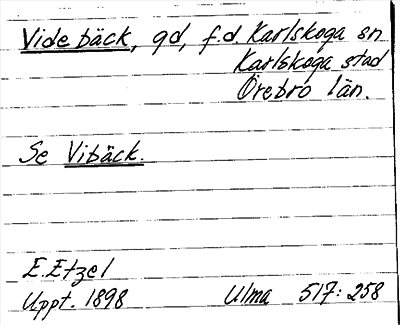 Videbäck, gd, f.d. Karlskoga sn
Karlskoga stad
Örebro län.
Se Vibäck.
E. Etzel
Uppt. 1898 Ulma 517: 258